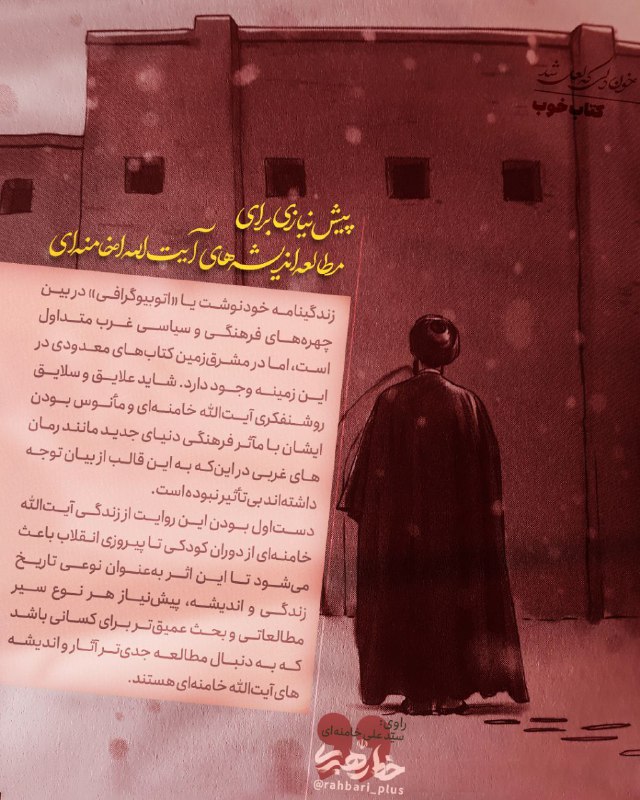 خون دلی که لعل شد
کتاب خوب
پیش نیازی برای
مطالعه اندیشه‌های آیت الله خامنه‌ای
زندگینامه خودنوشت یا «اتوبیوگرافی» در بین
چهره‌های فرهنگی و سیاسی غرب متداول
است، اما در مشرق‌زمین کتاب‌های معدودی در
این زمینه وجود دارد. شاید علایق و سلایق
روشنفکری آیت‌الله خامنه‌ای و مأنوس بودن
ایشان با مآثر فرهنگی دنیای جدید مانند رمان
های غربی در این‌که به این قالب از بیان توجه
داشته‌اند بی‌تأثیر نبوده است.
دست‌اول بودن این روایت از زندگی آیت‌الله
خامنه‌ای از دوران کودکی تا پیروزی انقلاب باعث
می‌شود تا این اثر به‌عنوان نوعی تاریخ
زندگی و اندیشه، پیش‌نیاز هر نوع سیر
مطالعاتی و بحث عمیق‌تر برای کسانی باشد
که به دنبال مطالعه جدی‌تر آثار و اندیشه
های آیت‌الله خامنه‌ای هستند.
راوی:
سید علی خامنه‌ای
@rahbari_plus